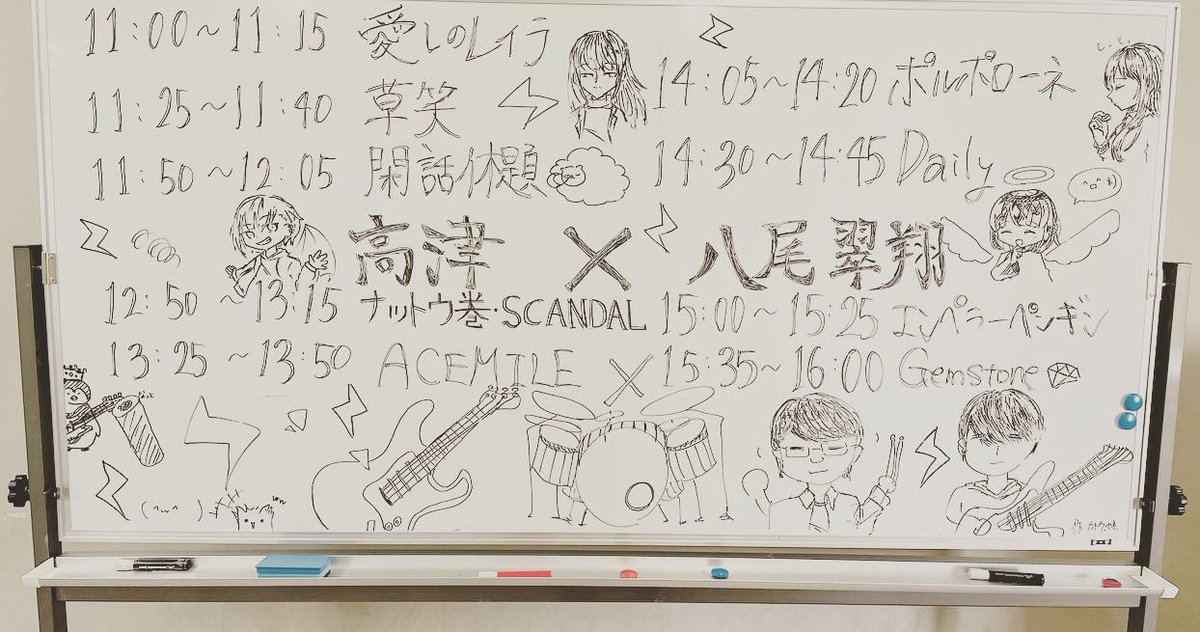 11:00～11:15 愛しのレイラ
11:25～11:40 草笑
11:50～12:05 閑話休題
14:05～14:20 ポルポローネ
14:30～14:45 Daily
高津 × 八尾翠翔
12:50～13:15 ナットウ巻・SCANDAL
13:25～13:50 ACEMILE
×
15:00～15:25 エンペラーペンギン
15:35～16:00 Gemstone